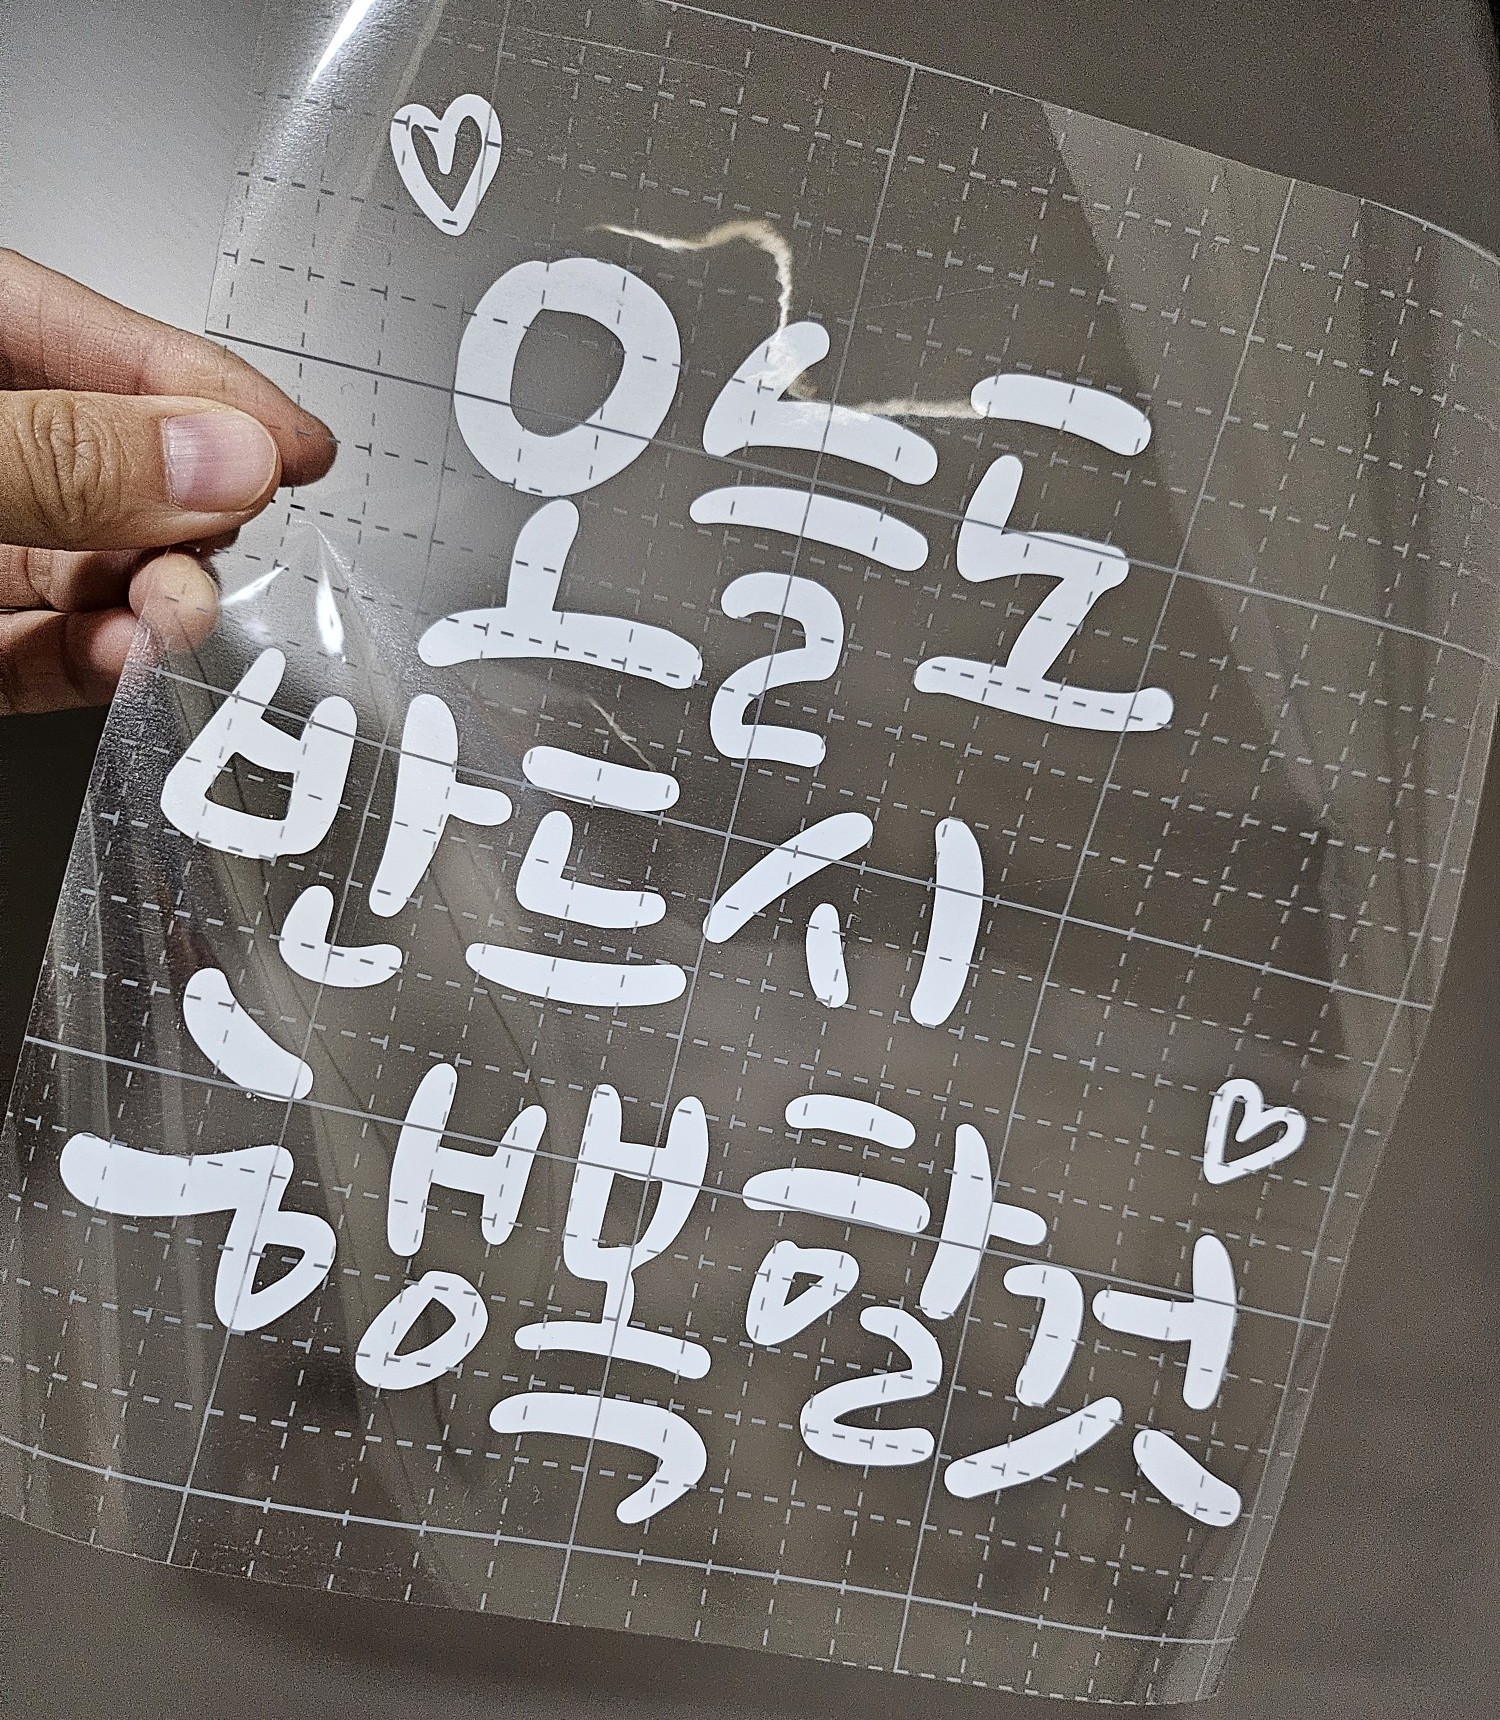 오늘도
반드시
행복할것